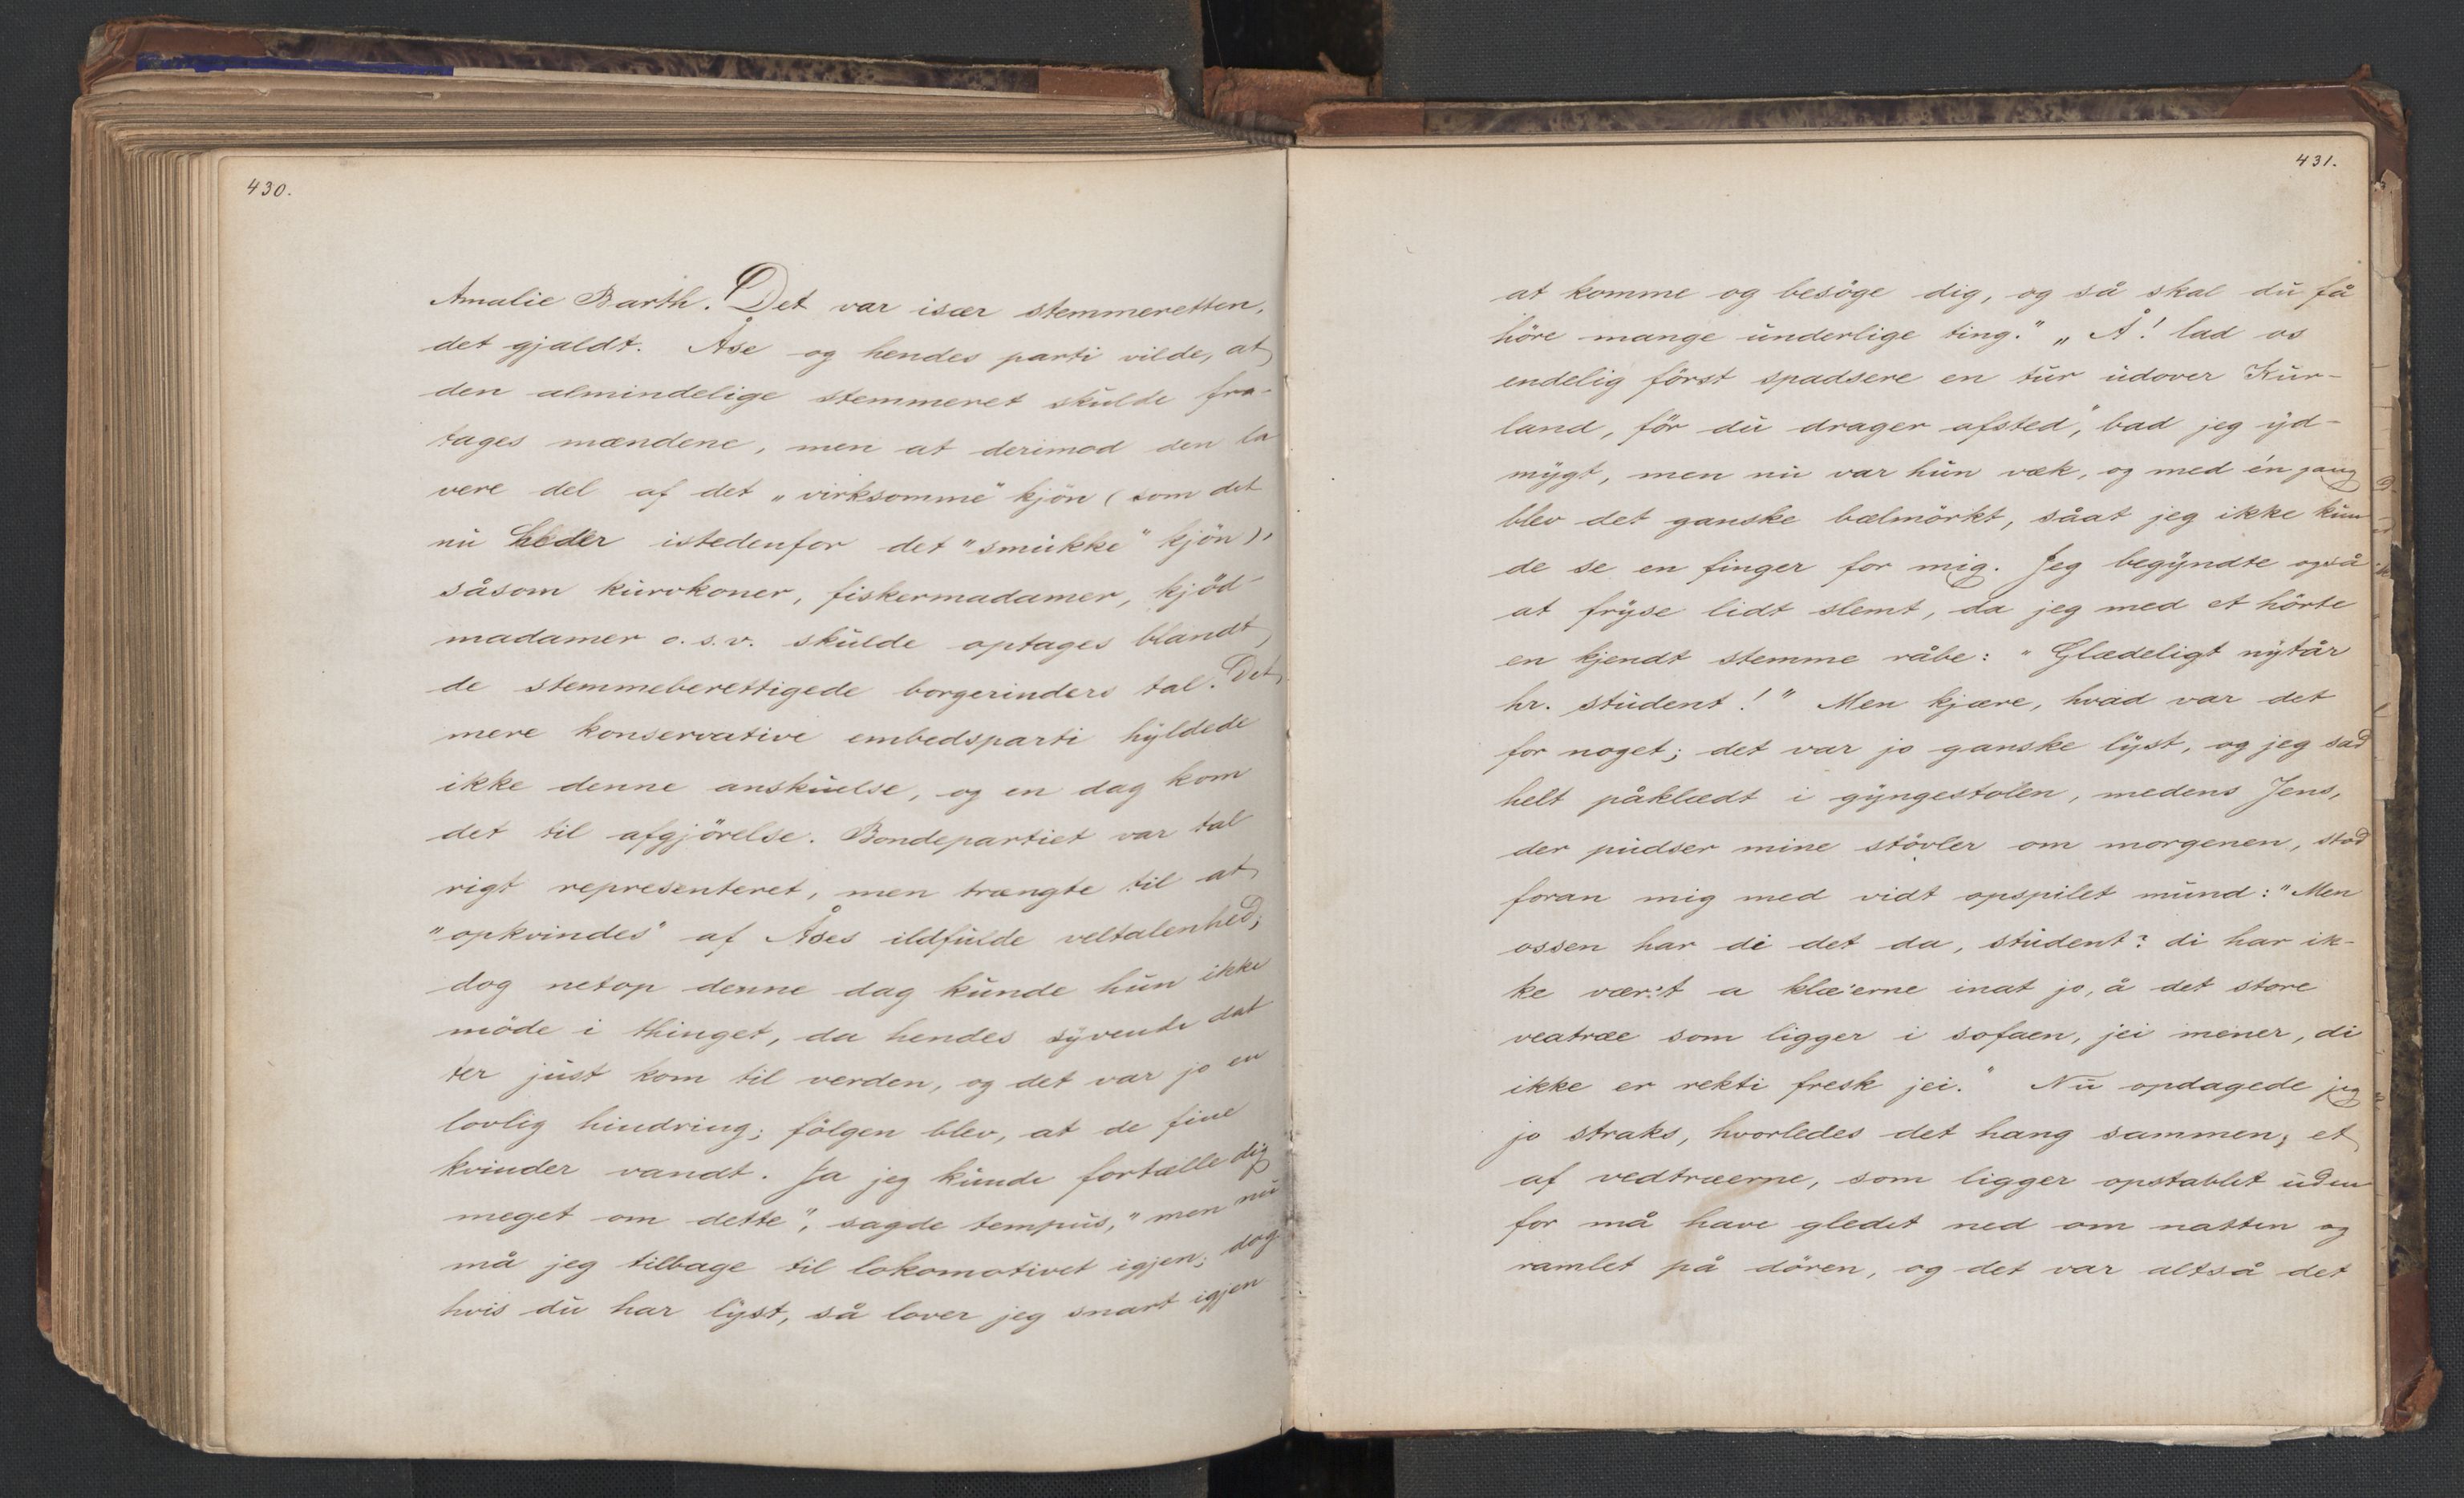 430.
Amalie Barth. Det var især stemmeretten,
det gjaldt. Åse og hendes parti vilde, at
den almindelige stemmeret skulde fra-
tages mændene, men at derimod den la
vere del af det „virksomme" kjön (som det
nu heder istedenfor det "smukke" kjön),
såsom kurvkoner, fiskermadamer, kjöd-
madamer o.s.v. skulde optages blandt
de stemmeberettigede borgerinders tal. Det
mere konservative embedsparti hyldede
ikke denne anskuelse, og en dag kom
det til afgjörelse. Bondepartiet var tal
rigt representeret, men trængte til at
"opkvindes" af Åses ildfulde veltalenhed;
dog netop denne dag kunde hun ikke
möde i thinget, da hendes syvende dat
ter just kom til verden, og det var jo en
lovlig hindring; fölgen blev, at de fine
kvinder vandt. Ja jeg kunde fortælle dig
meget om dette", sagde tempus, "men nu
må jeg tilbage til lokomotivet igjen; dog
hvis du har lyst, så lover jeg snart igjen
431.
at komme og besöge dig, og så skal du få
höre mange underlige ting." „Å! lad os
endelig först spadsere en tur udover Kur-
land, för du drager afsted", bad jeg yd-
mygt, men nu var hun væk, og med én gang
blev det ganske bælmörkt, såat jeg ikke kun
de se en finger for mig. Jeg begyndte også
at fryse lidt slemt, da jeg med et hörte
en kjendt stemme råbe: "Glædeligt nytår
hr. student!" Men kjære, hvad var det
for noget; det var jo ganske lyst, og jeg sad
helt påklædt i gyngestolen, medens Jens,
der pudser mine stövler om morgenen, stod
foran mig med vidt opspilet mund: "Men
ossen har di det da, student? di har ik-
ke vær't a klæ'erne inat jo, å det store
veatræe som ligger i sofaen, jei mener, di
ikke er rekti fresk jei." Nu opdagede jeg
jo straks, hvorledes det hang sammen; et
af vedtræerne, som ligger opstablet uden
for må have gledet ned om natten og
ramlet på dören, og det var altså det